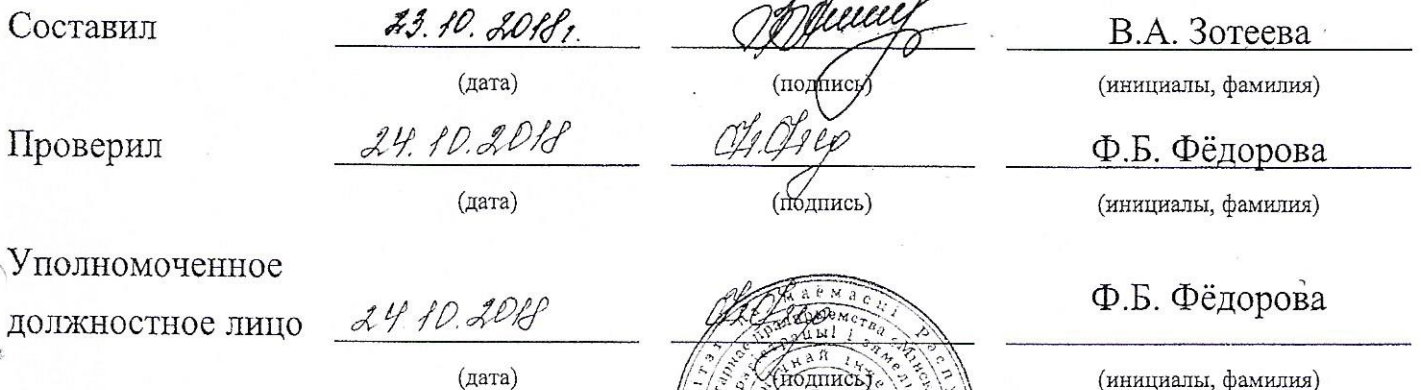 Составил 23.10.2018г. В.А. Зотеева
(дата) (подпись) (инициалы, фамилия)
Проверил 24.10.2018 Ф.Б. Фёдорова
(дата) (подпись) (инициалы, фамилия)
Уполномоченное
должностное лицо 24.10.2018 Ф.Б. Фёдорова
(дата) (подпись) (инициалы, фамилия)
маёмасці